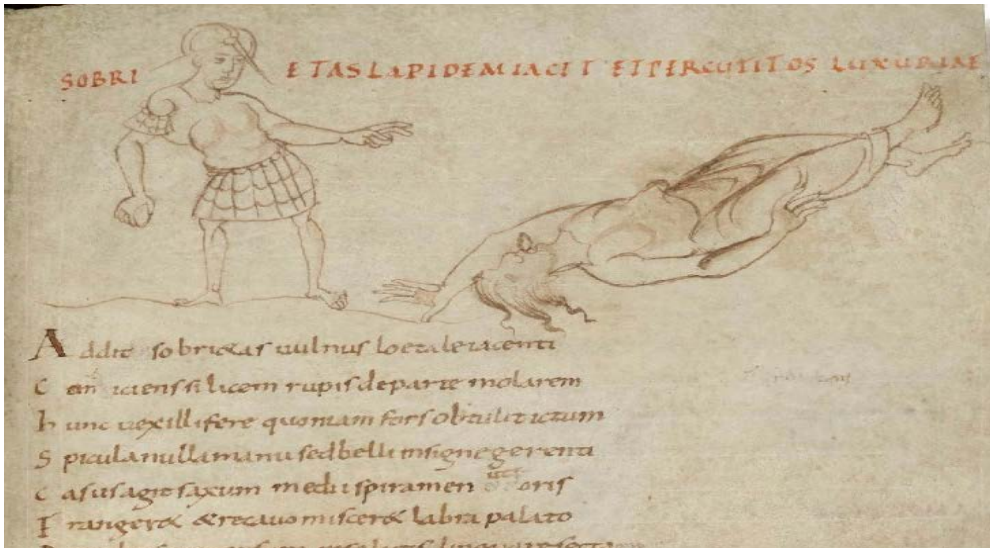 SOBRIETAS LAPIDEM IACIT ET PERCUTIT OS LUXURIAE
Addit sobrietas uulnus loetale iacenti
Coniciens silicem rupis de parte molarem
hunc uexillifere quoniam fors obtulit ictum
Spicula nulla manu sed belli insigne gerenti
Casus agit saxum medii spiramen ut oris
Frangeret & recauo misceret labra palato